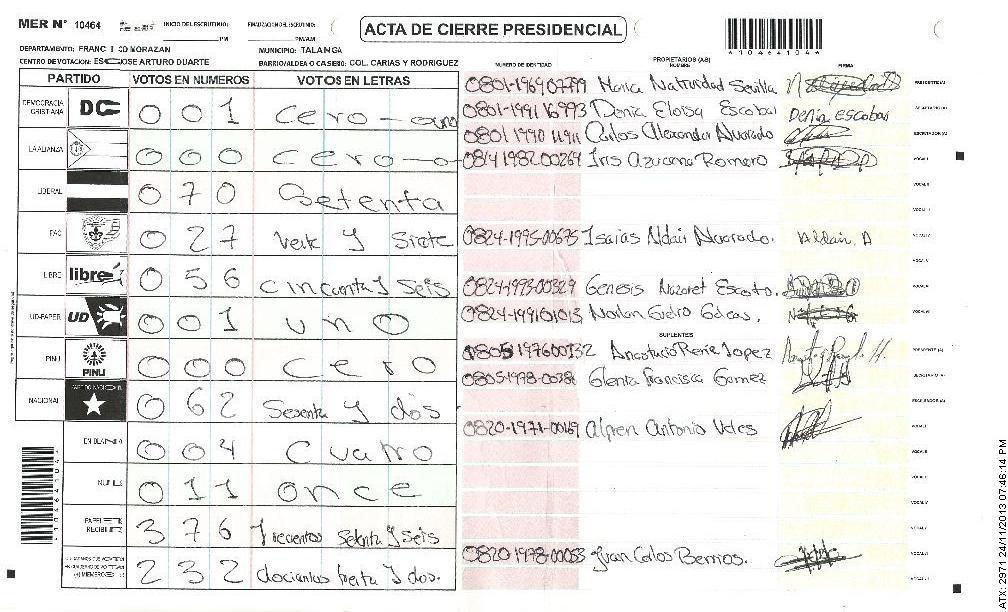 MER N° 10464
INICIO DEL ESCRUTINIO: PM
FINALIZACION DEL ESCRUTINIO: PM/AM
ACTA DE CIERRE PRESIDENCIAL
*10464104*
DEPARTAMENTO: FRANCISCO MORAZAN
MUNICIPIO: TALANGA
CENTRO DE VOTACION: ESC JOSE ARTURO DUARTE
BARRIO/ALDEA O CASERIO: COL. CARIAS Y RODRIGUEZ
NUMERO DE IDENTIDAD
PROPIETARIOS (AS)
NOMBRE
FIRMA
PARTIDO VOTOS EN NUMEROS VOTOS EN LETRAS
DEMOCRACIA CRISTIANA DC 0 0 1 cero - uno
LA ALIANZA 0 0 0 cero - o
LIBERAL 0 7 0 Setenta
PAC 0 2 7 Veite y Siete
LIBRE libre 0 5 6 cincuenta y seis
UD-FAPER UD 0 0 1 uno
PINU PINU 0 0 0 cero
NACIONAL PARTIDO NACIONAL 0 6 2 Sesenta y dos
EN BLANCO 0 0 4 Cuatro
NULOS 0 1 1 once
PAPELETAS RECIBIDAS 3 7 6 Trecientos Setenta y Seis
2 3 2 docientos treita y dos.
0801-1969 02799 Maria Natividad Sevilla PRESIDENTE(A)
0801-1991 16993 Denia Eloisa Escobar Denia Escobar SECRETARIO(A)
0801 1990 11911 Carlos Alexander Alvarado ESCRUTADOR(A)
0814 1982-00264 Iris Azucena Romero VOCAL I
VOCAL II
0824-1995-00675 Isaias Aldair Alvarado. Aldair. A
VOCAL V
0824-1993-00329 Genesis Nazaret Escoto.
0824-1991 01013
SUPLENTES
0805 1976 00132 Anastacio Rene Lopez PRESIDENTE (A)
0805-1998-00386 Glenia Francisca Gomez SECRETARIO (A)
ESCRUTADOR (A)
0820-1971-00169 Antonio Veles VOCAL I
0820-1998-00053 Juan Carlos Berrios.
*10464104*
ATX: 2971 24/11/2013 07:46:14 PM